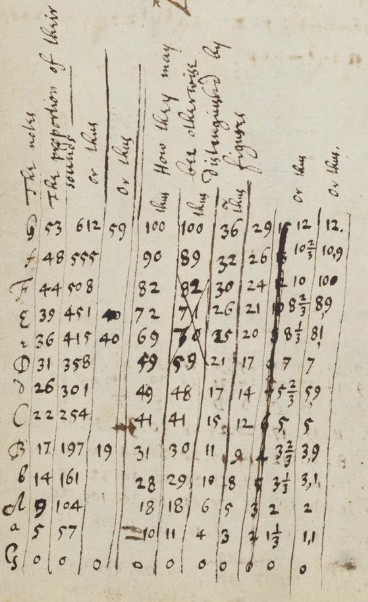 The notes
The proportion of their sounds
or thus
Or thus
How they may bee otherwise distinguished by figures
thus
thus
thus
or thus
Or thus.
G 53 612 59 100 100 36 29 12 12.
f 48 555 90 89 32 26 10⅔ 10,9
F 44 508 82 82 30 24 10 100
E 39 451 40 72 71 26 21 8⅔ 8,9
e 36 415 40 69 70 25 20 8⅓ 8,1
D 31 358 59 59 21 17 7 7
d 26 301 49 48 17 14 5⅔ 5,9
C 22 254 41 41 15 12 5 5
B 17 197 19 31 30 11 9 3⅔ 3,9
b 14 161 28 29 10 8 5 3⅓ 3,1
A 9 104 18 18 6 5 3 2 2
a 5 57 10 11 4 3 2 1⅓ 1,1
G 0 0 0 0 0 0 0 0 0 0